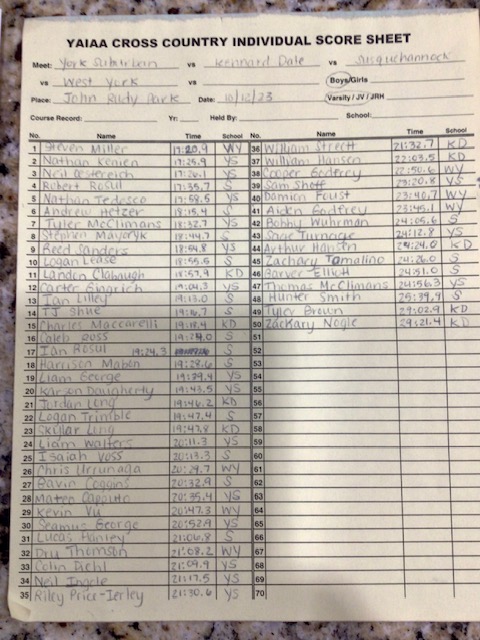 YAIAA CROSS COUNTRY INDIVIDUAL SCORE SHEET
Meet: York Suburban vs Kennard Dale vs Susquehannock
vs West York vs Boys/Girls
Place: John Rudy Park Date: 10/12/23 Varsity / JV / JRH
Course Record: Yr: Held By: School:
No. Name Time School No. Name Time School
1 Steven Miller 17:20.9 WY 36 William Strett 21:32.7 KD
2 Nathan Kenien 17:25.9 YS 37 William Hansen 22:03.5 KD
3 Neil Oestereich 17:26.1 YS 38 Cooper Godfrey 22:50.6 WY
4 Robert Rosul 17:35.7 S 39 Sam Shoff 23:20.8 YS
5 Nathan Tedesco 17:58.5 YS 40 Damien Foust 23:40.7 WY
6 Andrew Hetzer 18:15.4 S 41 Aiden Godfrey 23:45.1 WY
7 Tyler McClimans 18:32.7 YS 42 Bobby Wuhrman 24:05.6 S
8 Stephen Mauryk 18:44.7 S 43 24:12.8 YS
9 Reed Sanders 18:54.8 YS 44 Arthur Hansen 24:24.0 KD
10 Logan Lease 18:55.5 S 45 Zachary Tomalino 24:26.0 S
11 Landen Clabaugh 18:57.9 KD 46 Elliott 24:51.0 S
12 Carter Gingrich 19:04.3 YS 47 Thomas McClimans 24:56.3 YS
13 Ian Lilley 19:13.0 S 48 Hunter Smith 25:39.9 S
14 TJ Shue 19:16.7 S 49 Tyler Brown 29:02.9 KD
15 Charles Maccarelli 19:18.4 KD 50 Zackary Nogle 29:21.4 KD
16 Caleb Ross 19:24.0 S 51
17 Ian Rosul 19:24.3 S 52
18 Harrison Mabon 19:28.6 S 53
19 Liam George 19:39.9 YS 54
20 Karson Daugherty 19:43.5 YS 55
21 Jordan Ling 19:46.2 KD 56
22 Logan Trimble 19:47.4 S 57
23 Skillar Ling 19:47.8 KD 58
24 Liam Walters 20:11.3 YS 59
25 Isaiah Voss 20:13.3 S 60
26 Chris Urrunaga 20:29.7 WY 61
27 Gavin Coggins 20:32.9 S 62
28 Mateo 20:35.4 YS 63
29 Kevin Vu 20:47.3 WY 64
30 Seamus George 20:52.9 YS 65
31 Lucas Hanley 21:06.8 S 66
32 Dru Thomson 21:08.2 WY 67
33 Colin Diehl 21:09.9 YS 68
34 Neil Ingole 21:17.5 YS 69
35 Riley Price-Ierley 21:30.6 YS 70